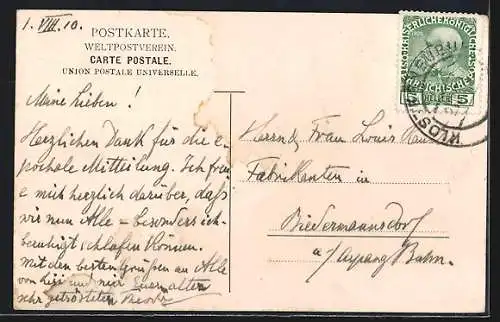 1. VIII. 10.
POSTKARTE.
WELTPOSTVEREIN.
CARTE POSTALE.
UNION POSTALE UNIVERSELLE.
Meine Lieben!
Herzlichen Dank für die e-
pochale Mitteilung. Ich freu-
e mich herzlich darüber, daß
wir nun Alle - besonders ich -
beruhigt schlafen können.
Mit den besten Grüßen an Alle
von Lisi und mir Euer alten
sehr getrösteten
Herrn & Frau Louis
Fabrikanten in
Biedermannsdorf
a/ Aspang Bahn.
5 5
KLOST